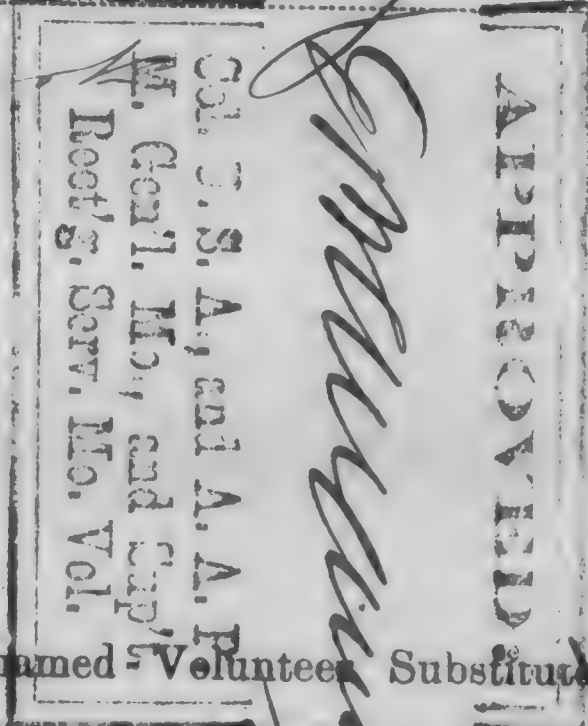 APPROVED.
Col. U.S.A., and A. A. P.
M. Gen'l. Mo., and Sup't.
Rect'g. Serv. Mo. Vol.
named Volunteer Substitute